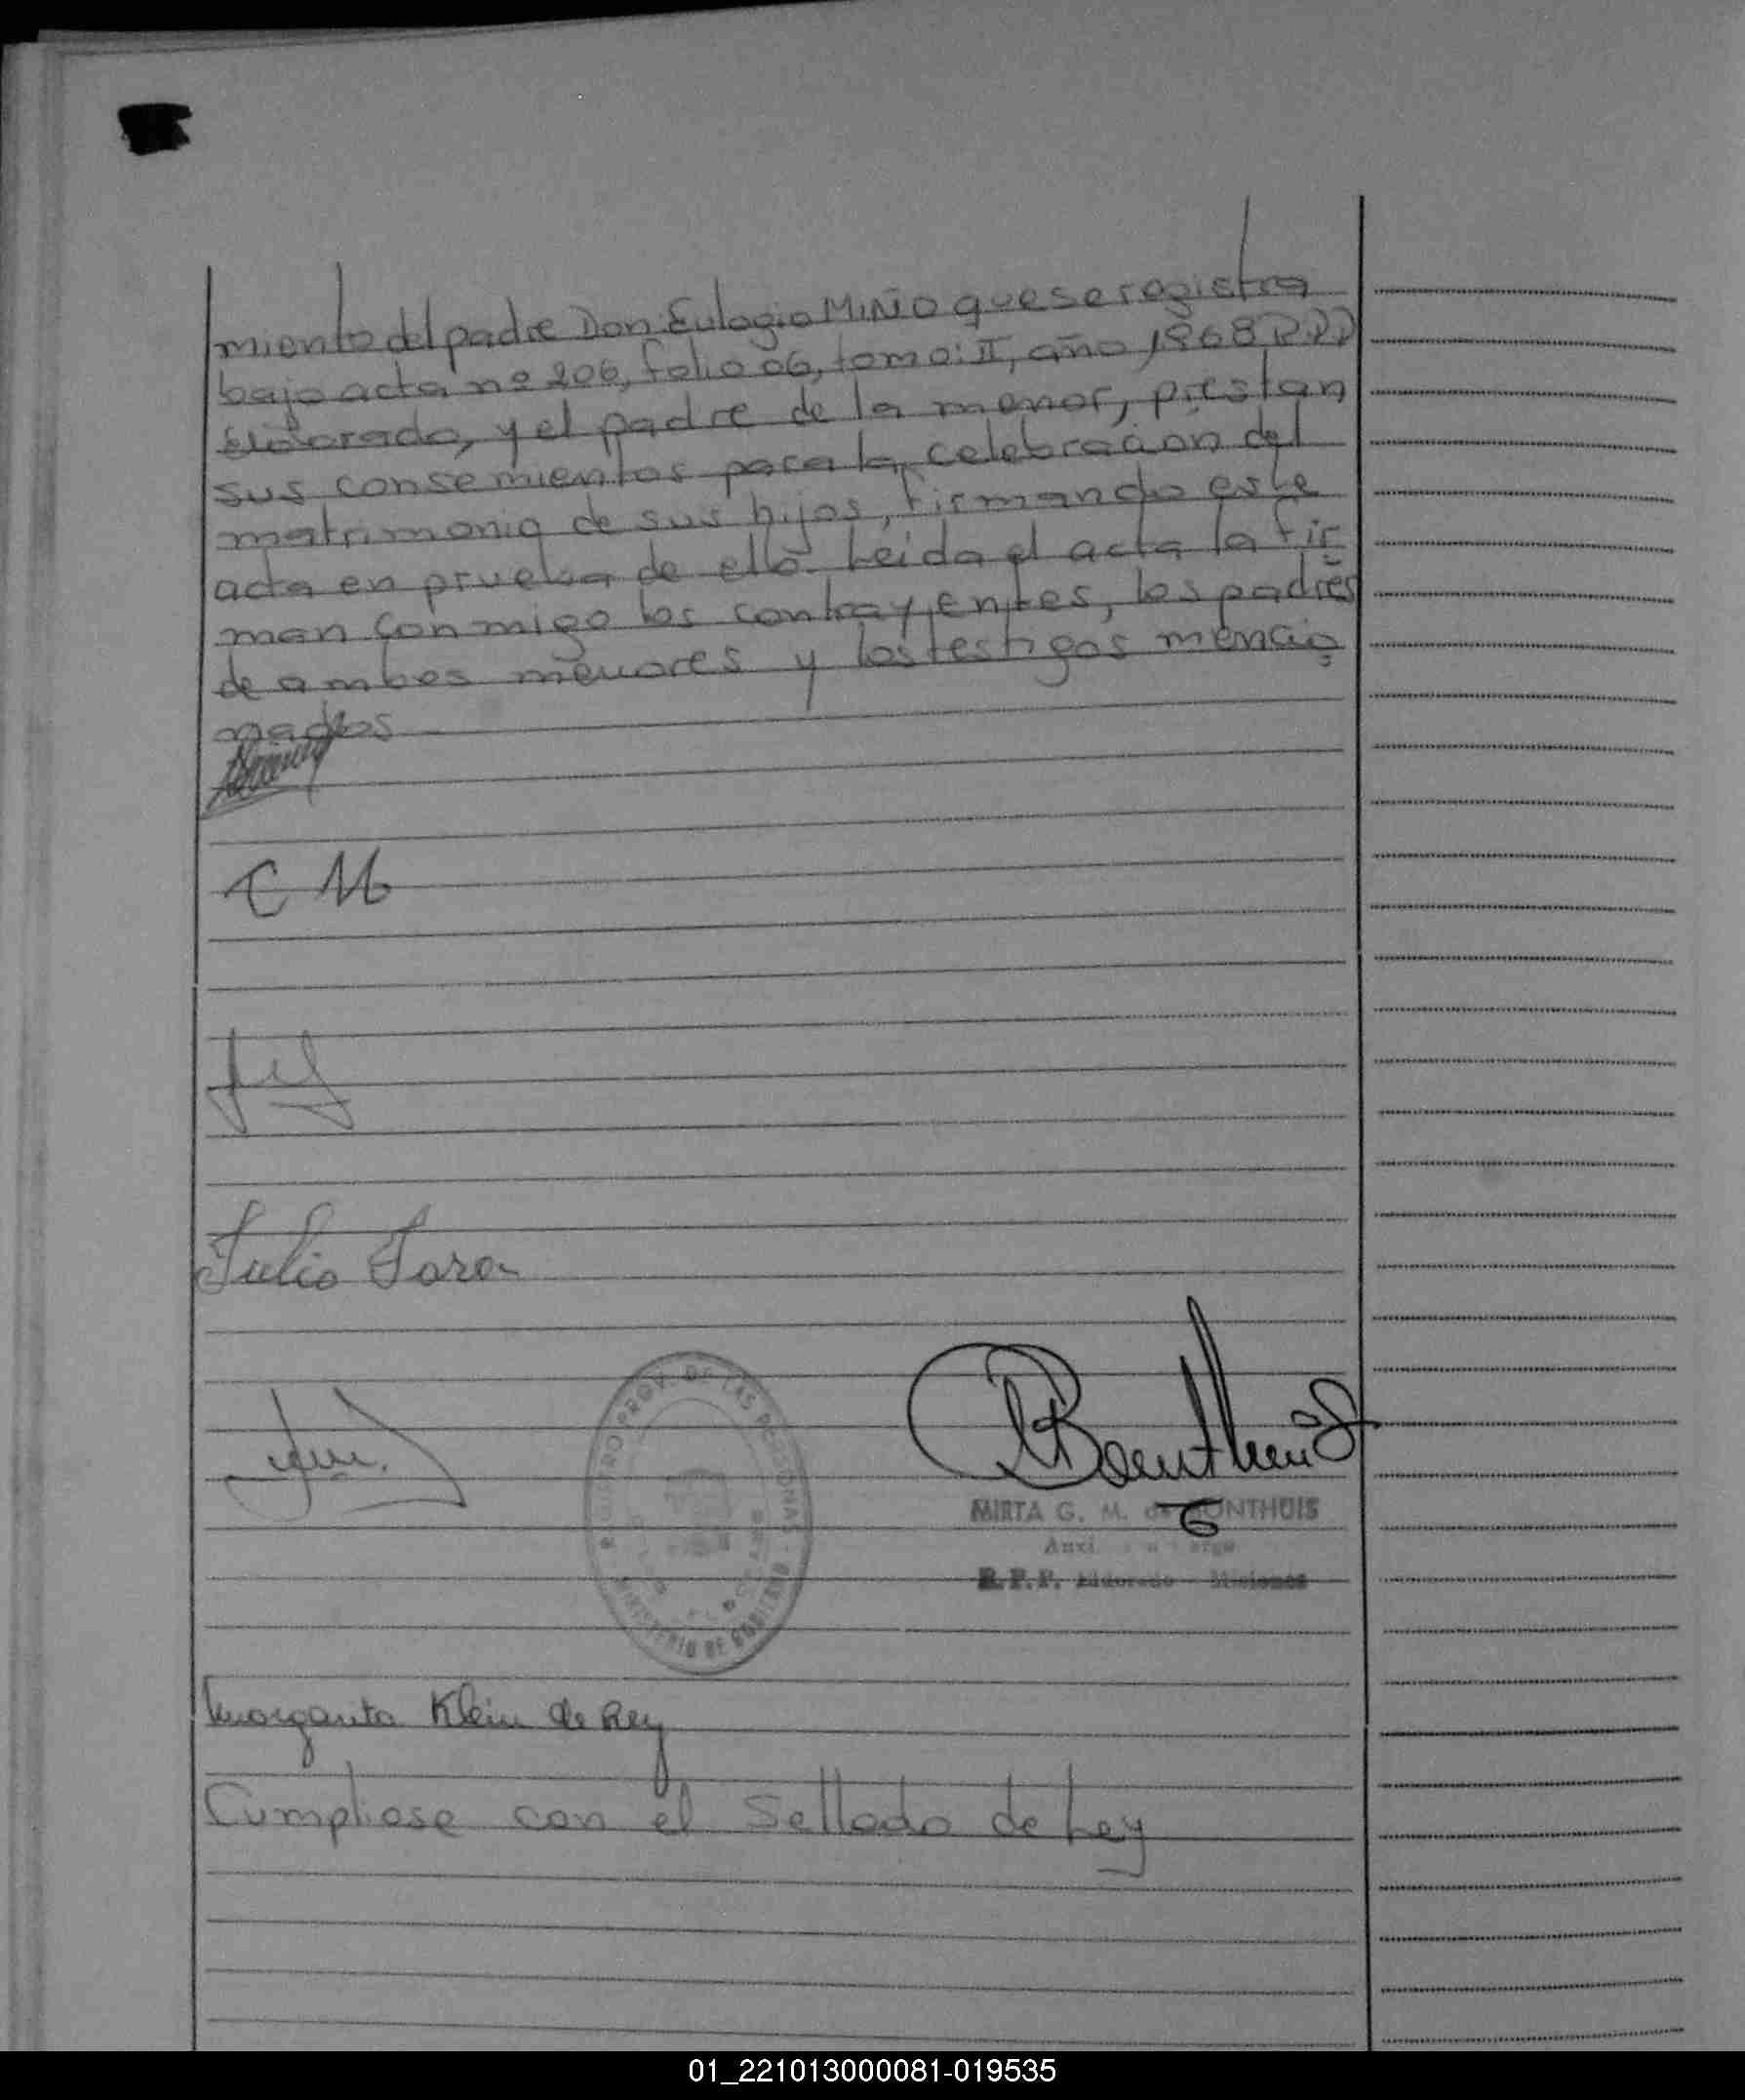 miento del padre Don Eulogio MIÑO que se registra
bajo acta nº 206, folio 06, tomo: II, año 1968 RPP
Eldorado, y el padre de la menor, prestan
sus consemientos para la celebracion del
matrimonio de sus hijos, firmando este
acta en prueba de ello. Leida el acta la fir
man conmigo los contrayentes, los padres
de ambos menores y los testigos mencio
nados
C M
Julio
REGISTRO PROV. DE LAS PERSONAS
MINISTERIO DE GOBIERNO
MIRTA G. M. de BONTHUIS
R. P. P. Eldorado - Misiones
Margarita Klein de Rey
Cumpliose con el Sellado de Ley
01_221013000081-019535